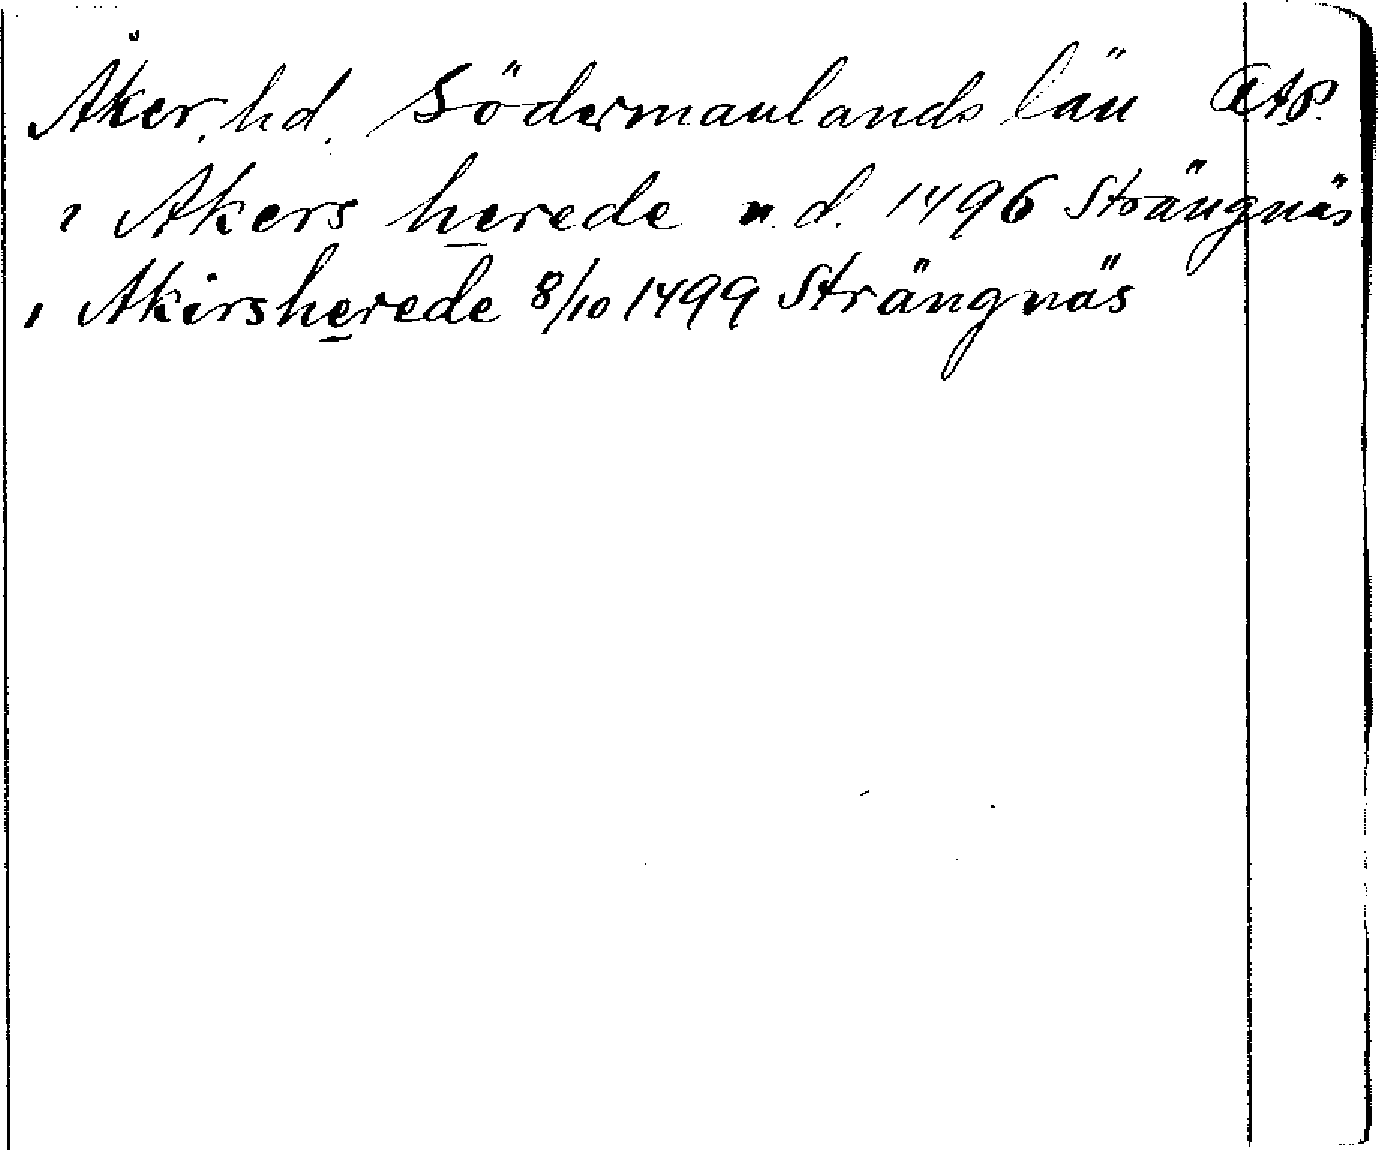 Åker, hd. Södermanlands län
ı Akers herede n.d. 1496 Strängnäs
ı Akirsherede 8/10 1499 Strängnäs